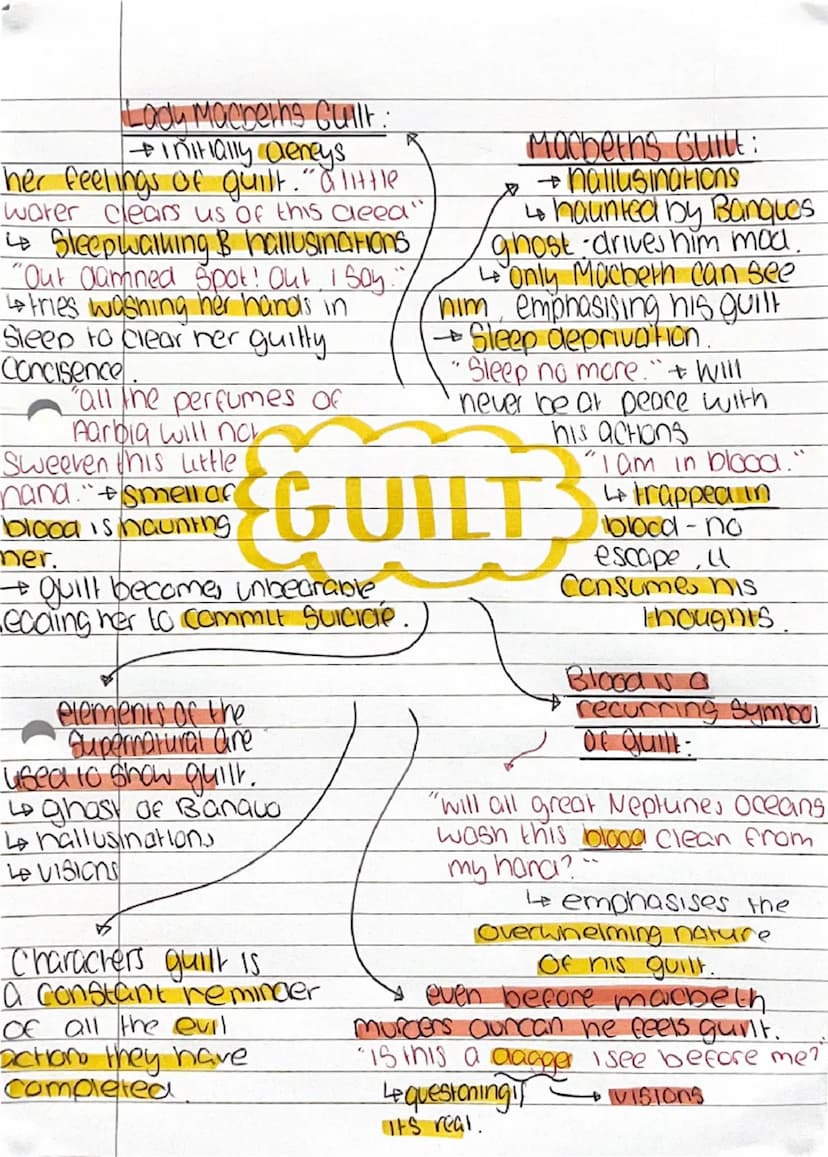 Lady Macbeths Guilt:
→ initially deneys
her feelings of guilt. "a little
water clears us of this deed"
↳ Sleepwalking & hallusinations
"Out damned spot! Out, I say."
↳ tries washing her hands in
sleep to clear her guilty
concisence.
"all the perfumes of
Aarbia will not
sweeten this little
hand." → smell of
blood is haunting
her.
→ guilt becomes unbearable
leading her to commit suicide.
Macbeths Guilt:
→ hallusinations
↳ haunted by Banquos
ghost - drives him mad.
↳ only Macbeth can see
him, emphasising his guilt
→ Sleep deprivation.
"Sleep no more." → will
never be at peace with
his actions
"I am in blood."
↳ trapped in
blood - no
escape, it
consumes his
thoughts.
GUILT
elements of the
supernatural are
used to show guilt.
↳ ghost of Banquo
↳ hallusinations
↳ visions
Blood is a
recurring symbol
of guilt:
"will all great Neptunes oceans
wash this blood clean from
my hand?"
↳ emphasises the
overwhelming nature
of his guilt.
Characters guilt is
a constant reminder
of all the evil
action they have
completed.
even before macbeth
murders duncan he feels guilt.
"Is this a dagger I see before me?"
↳ questioning if → visions
its real.